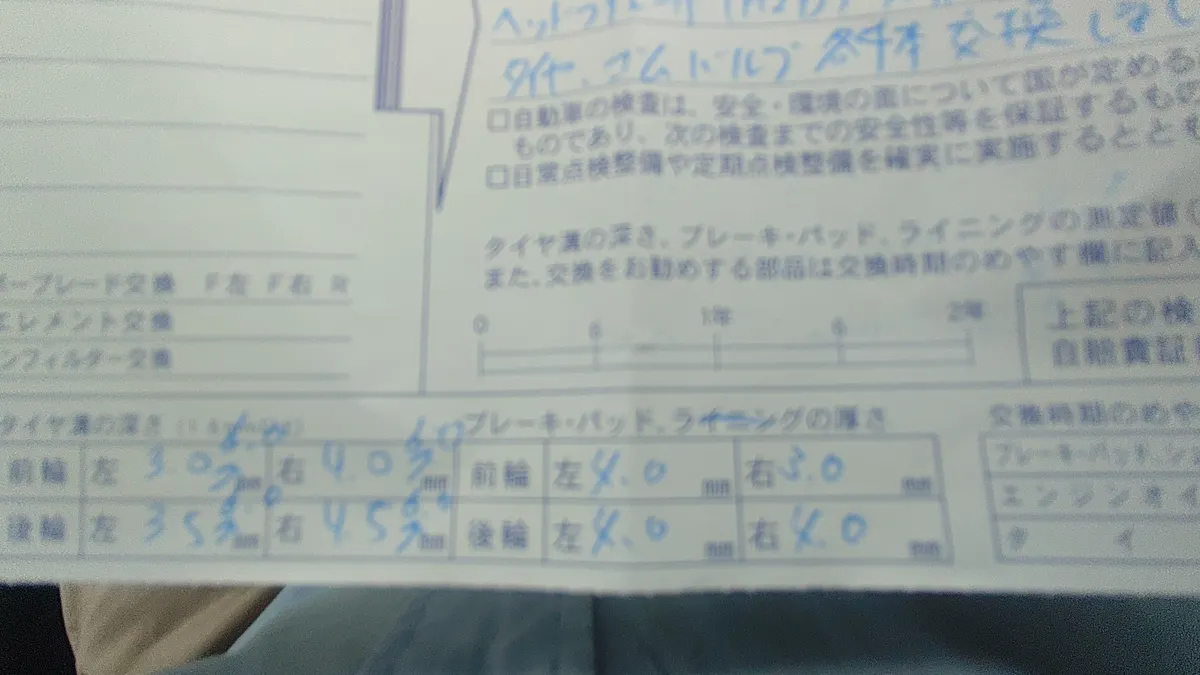 タイヤ、ゴムバルブ 各4本 交換しまし
□自動車の検査は、安全・環境の面について国が定める
ものであり、次の検査までの安全性等を保証するもの
□日常点検整備や定期点検整備を確実に実施するととも
タイヤ溝の深さ、ブレーキ・パッド、ライニングの測定値
また、交換をお勧めする部品は交換時期のめやす欄に記入
ーブレード交換 F左 F右 R
エレメント交換
ンフィルター交換
0 6 1年 6 2年
上記の検
自賠責証
タイヤ溝の深さ
ブレーキ・パッド、ライニングの厚さ
交換時期のめや
6.0 6.0
前輪 左 3.0 mm 右 4.0 mm 前輪 左 4.0 mm 右 3.0 mm
6.0 6.0
後輪 左 3.5 mm 右 4.5 mm 後輪 左 4.0 mm 右 4.0 mm
ブレーキ・パッド、シュ
エンジンオイ
タイ